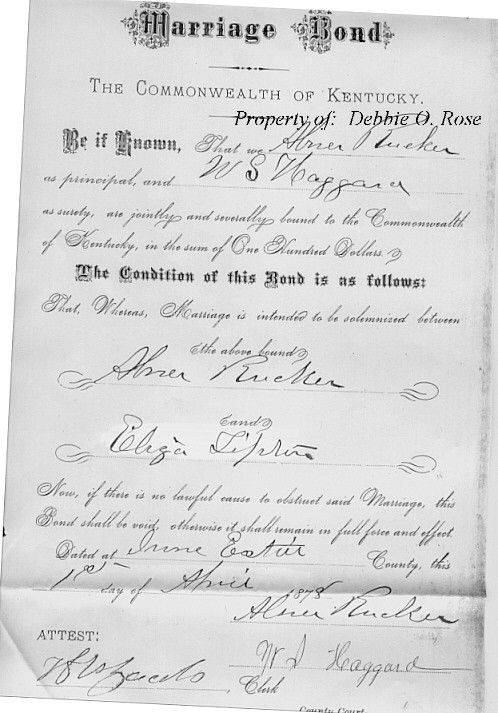 Marriage Bond
THE COMMONWEALTH OF KENTUCKY.
Property of: Debbie O. Rose
Be it Known, That we Abner Rucker
as principal, and W S Haggard
as surety, are jointly and severally bound to the Commonwealth
of Kentucky, in the sum of One Hundred Dollars.
The Condition of this Bond is as follows:
That, Whereas, Marriage is intended to be solemnized between
the above bound
Abner Rucker
and
Eliza Lipton
Now, if there is no lawful cause to obstruct said Marriage, this
Bond shall be void, otherwise it shall remain in full force and effect.
Dated at Irvine Estill County, this
1st day of April 1878
Abner Rucker
ATTEST:
W S Haggard
Clerk
County Court